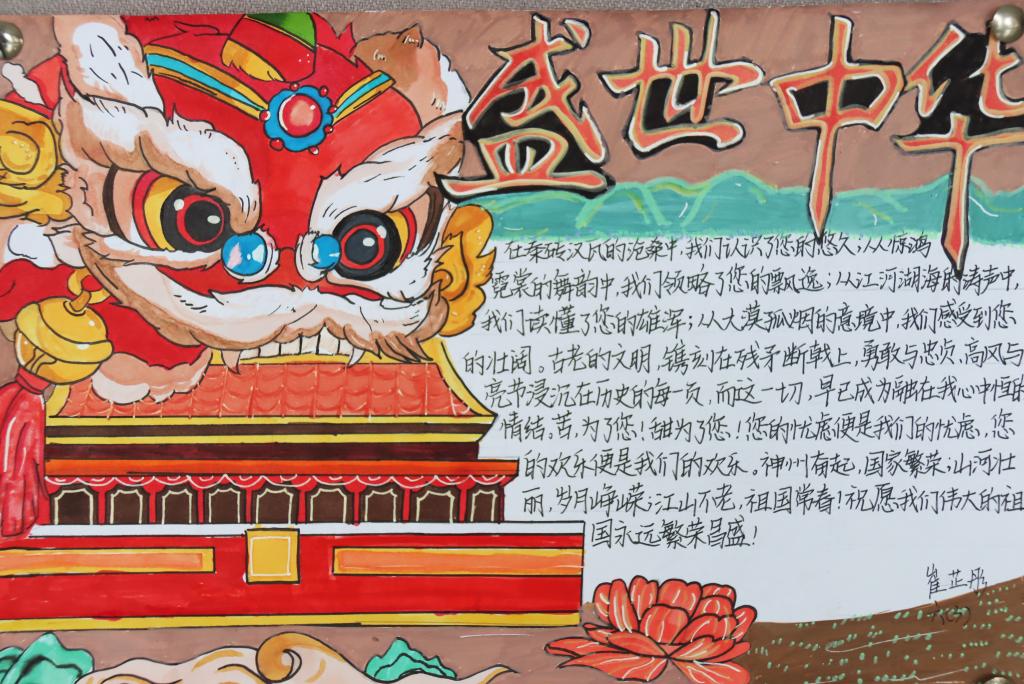 盛世中华
在秦砖汉瓦的沧桑中,我们认识了您的悠久;从惊鸿
霓裳的舞韵中,我们领略了您的飘逸;从江河湖海的涛声中,
我们读懂了您的雄浑;从大漠孤烟的意境中,我们感受到您
的壮阔。古老的文明,镌刻在残矛断戟上,勇敢与忠贞、高风与
亮节浸沉在历史的每一页,而这一切,早已成为融在我心中恒的
情结。苦,为了您!甜为了您!您的忧虑便是我们的忧虑,您
的欢乐便是我们的欢乐。神州奋起,国家繁荣;山河壮
丽,岁月峥嵘;江山不老,祖国常春!祝愿我们伟大的祖
国永远繁荣昌盛!
崔芷彤